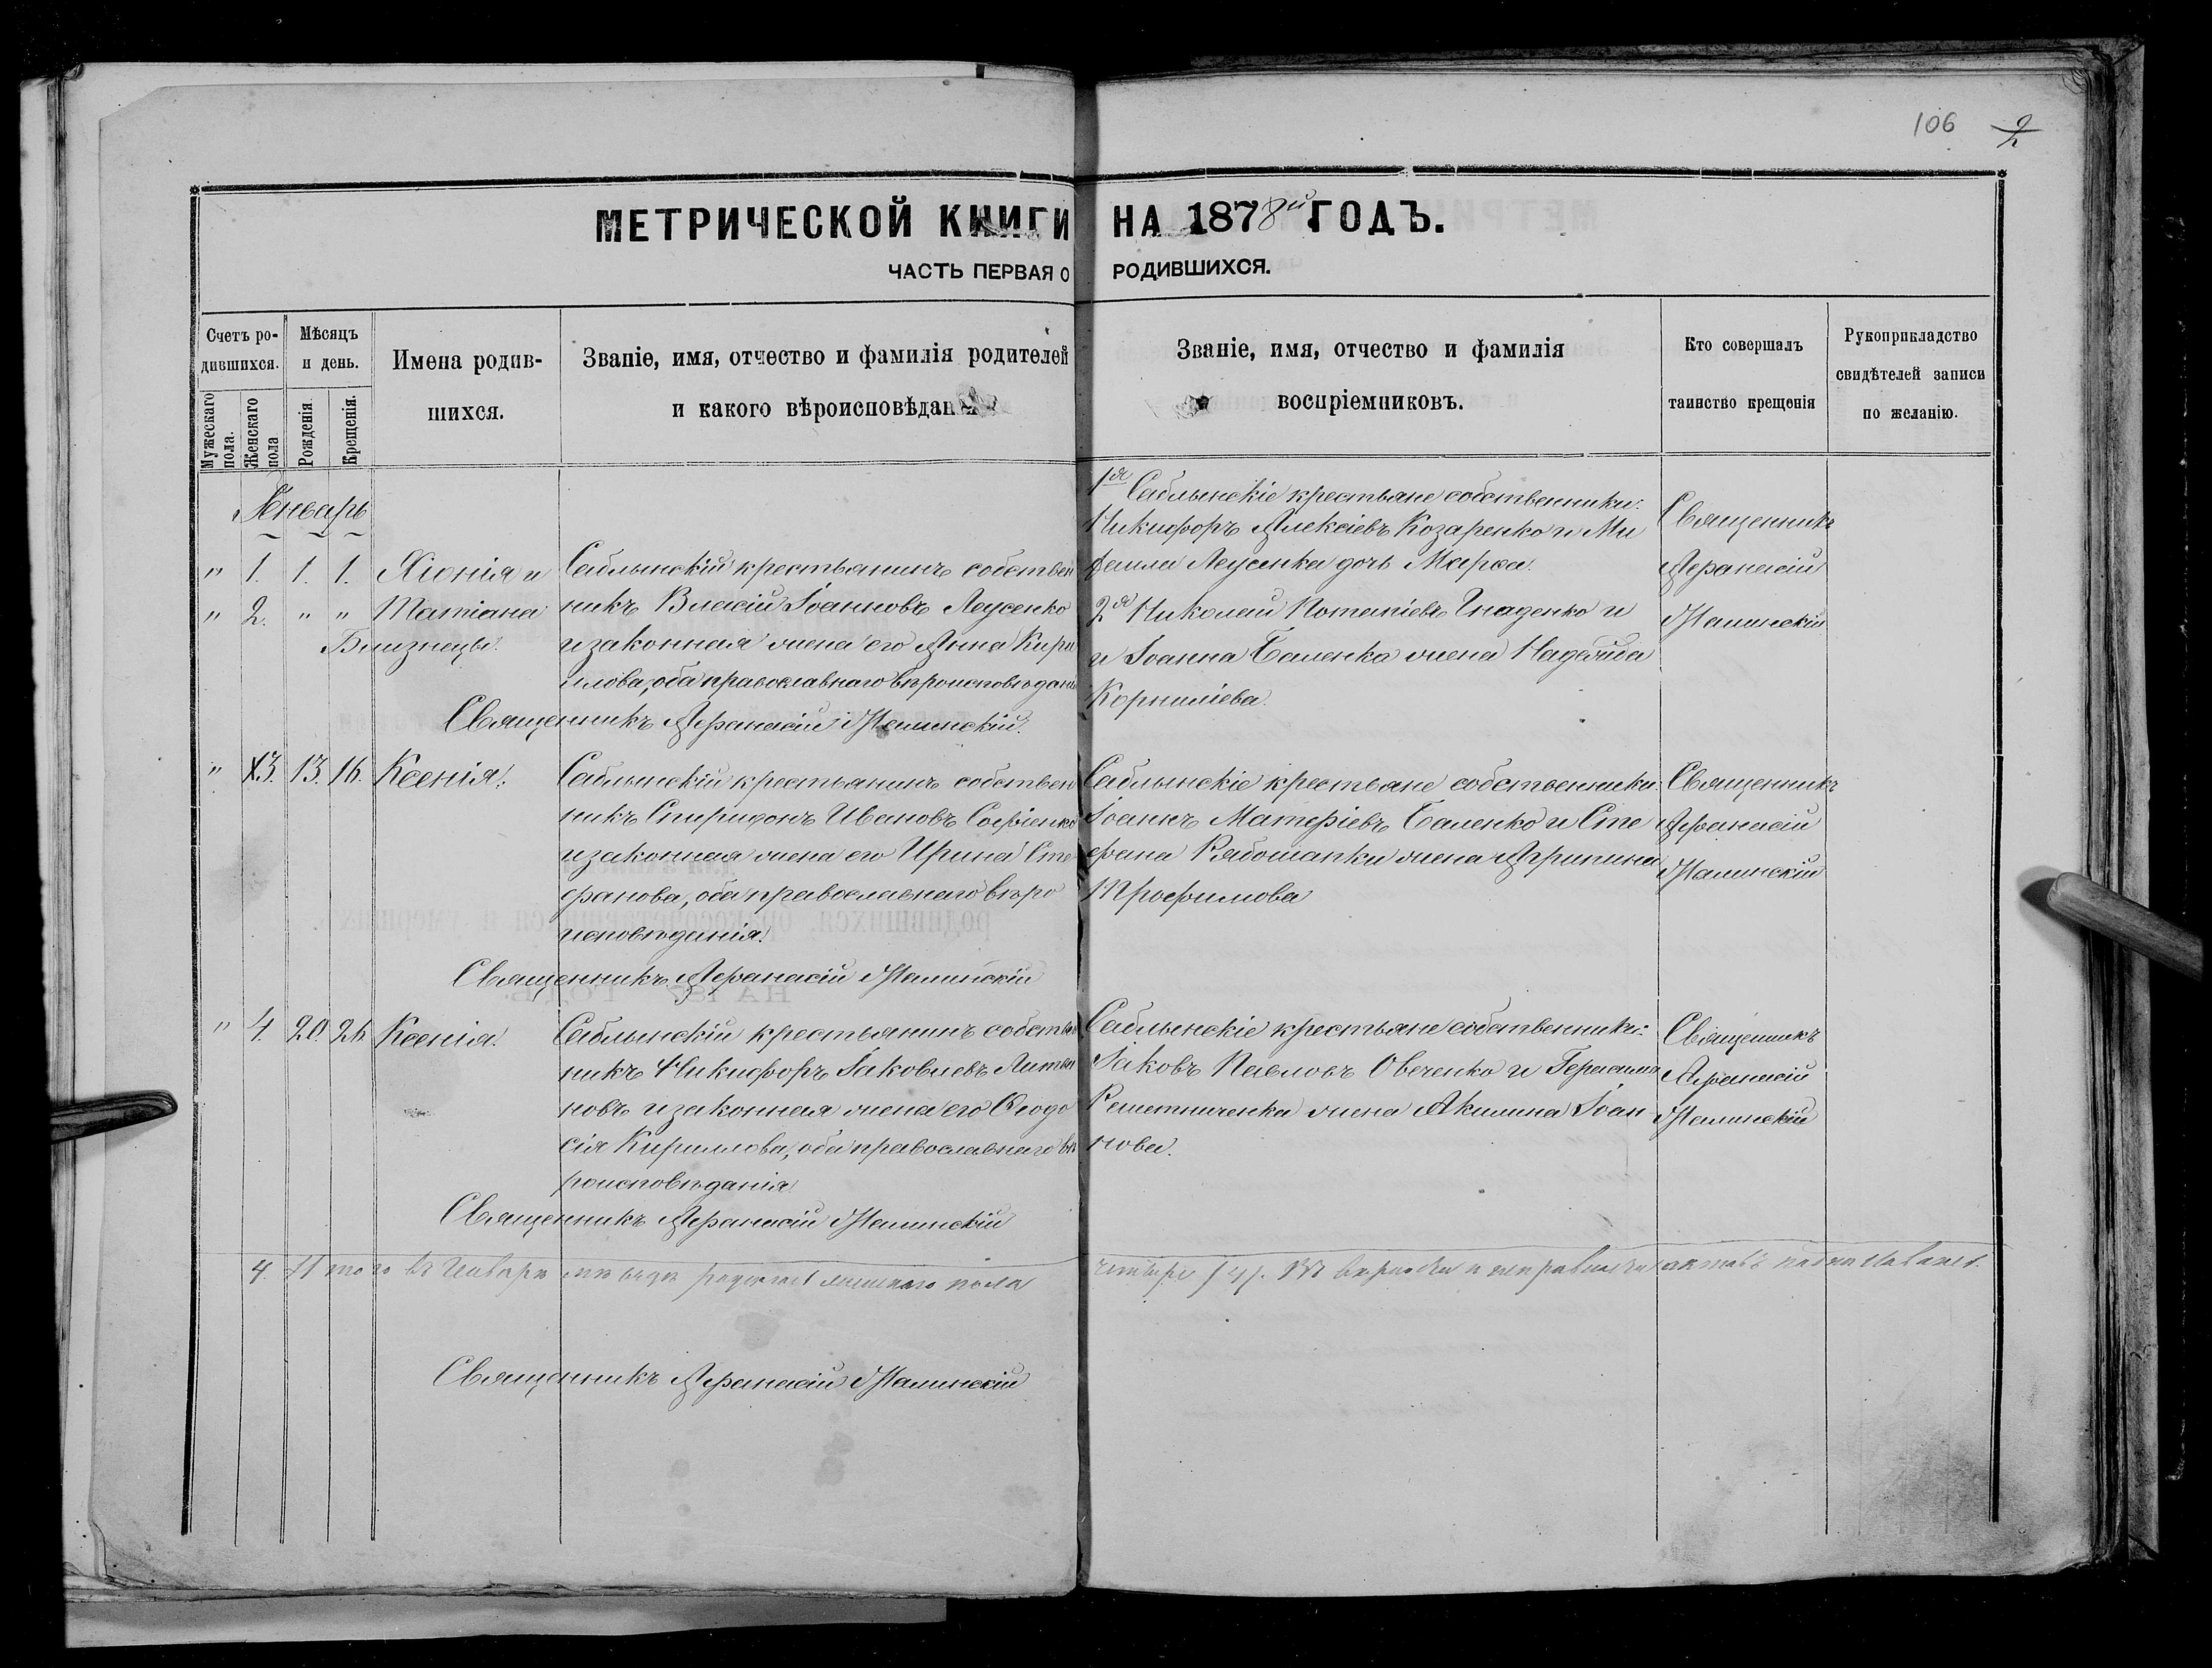 106 2
МЕТРИЧЕСКОЙ КНИГИ НА 1878й ГОДЪ.
ЧАСТЬ ПЕРВАЯ О РОДИВШИХСЯ.
Счетъ родившихся.
Мужескаго пола.
Женскаго пола
Мѣсяцъ и день.
Рожденія.
Крещенія.
Имена родившихся.
Званіе, имя, отчество и фамилія родителей
и какого вѣроисповѣданія
Званіе, имя, отчество и фамилія
воспріемниковъ.
Кто совершалъ
таинство крещенія
Рукоприкладство
свидѣтелей записи
по желанію.
Январь
" 1. 1. 1. Хіонія и
" 2. " " Татіана
Близнецы.
Саблынскій крестьянинъ собствен
никъ Власій Іоанновъ Леусенко
и законная жена его Анна Кири
лова, оба православнаго вѣроисповѣданія
Священникъ Афанасій
1я Саблынскіе крестьяне собственники:
Никифоръ Алексіевъ Козаренко и Ми
хаила Леусенка дочь Марѳа.
2я Николай Потапіевъ Гнаденко и
и Іоанна Баленка жена Надежда
Корниліева.
Священникъ
Афанасій
" 3. 13. 16. Ксенія.
Саблынскій крестьянинъ собствен
никъ Спиридонъ Ивановъ Софіенко
и законная жена его Ирина Сте
фанова, оба православнаго вѣро
исповѣданія.
Священникъ Афанасій
Саблынскіе крестьяне собственники:
Іоаннъ Матѳіевъ Баленко и Сте
фана Рябошапки жена Агрипина
Трофимова
Священникъ
Афанасій
" 4. 20. 26. Ксенія.
Саблынскій крестьянинъ собствен
никъ Никифоръ Іаковлевъ Литви
новъ и законная жена его Ѳеодо
сія Кириллова, оба православнаго вѣ
роисповѣданія
Священникъ Афанасій
Саблынскіе крестьяне собственники:
Іаковъ Павловъ Овченко и Герасима
Решетниченка жена Акилина Іоан
нова.
Священникъ
Афанасій
4. Итого въ Январѣ мѣсяцѣ родилось женскаго пола
четыре /4/.
Священникъ Афанасій